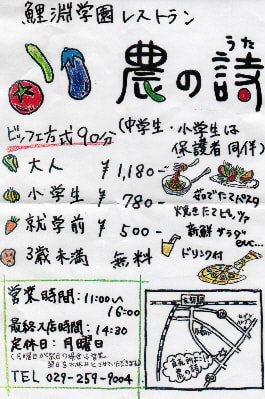 鯉淵学園レストラン
農の詩
うた
ビッフェ方式90分
(中学生・小学生は
保護者同伴)
大人 ¥1,180-
小学生 ¥780-
就学前 ¥500-
3歳未満 無料
茹でたてパスタ
焼きたてピザ
新鮮サラダ
etc...
ドリンク付
営業時間：11:00〜
16:00
最終入店時間：14:30
定休日：月曜日
TEL 029-259-9004